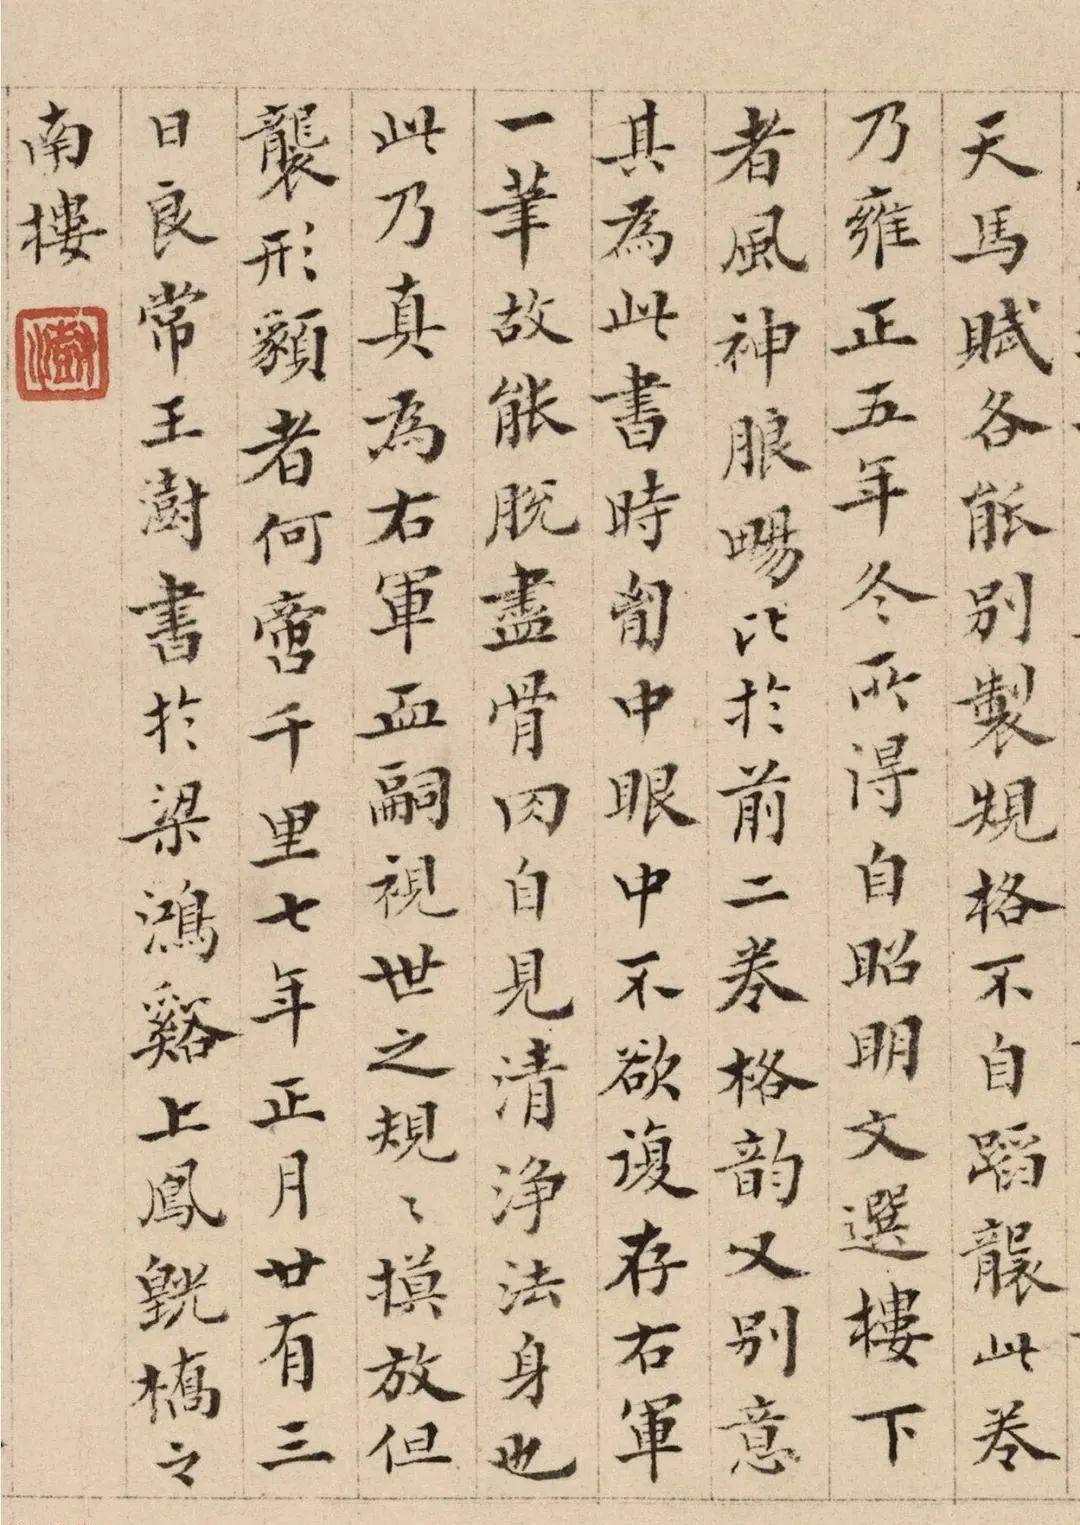 天馬賦各能別製規格不自蹈襲此卷
乃雍正五年冬所得自昭明文選樓下
者風神朖畼比於前二卷格韵又別意
其為此書時匈中眼中不欲復存右軍
一筆故能脫盡骨肉自見清浄法身也
此乃真為右軍血嗣視世之規〻摸放但
襲形䫉者何啻千里七年正月廿有三
日良常王澍書於梁鴻谿上鳳皝橋之
南樓
澍